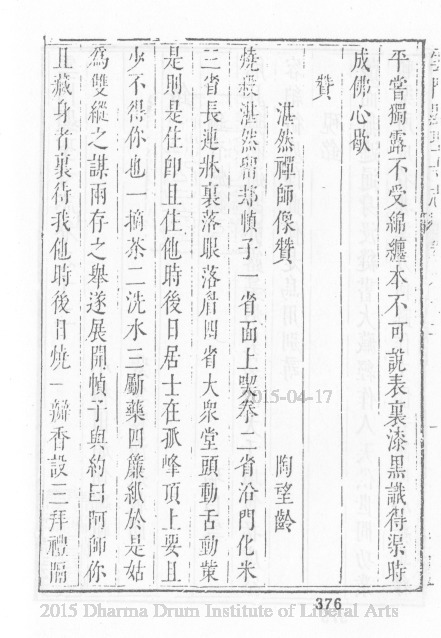 平嘗獨露不受綿纏本不可說表裏漆黑識得渠時
成佛心歇
贊
湛然禪師像贊 陶望齡
燒殺湛然留那幀子一省面上喫拳二省沿門化米
三省長連牀裏落眼落眉四省大衆堂頭動舌動觜
是則是住卽且住他時後日居士在孤峰頂上要且
少不得你也一摘茶二洗水三斸藥四簾紙於是姑
為雙縱之謀兩存之舉遂展開幀子與約曰阿師你
且藏身者裏待我他時後日燒一瓣香設三拜禮
2015-04-17
376
2015 Dharma Drum Institute of Liberal Arts